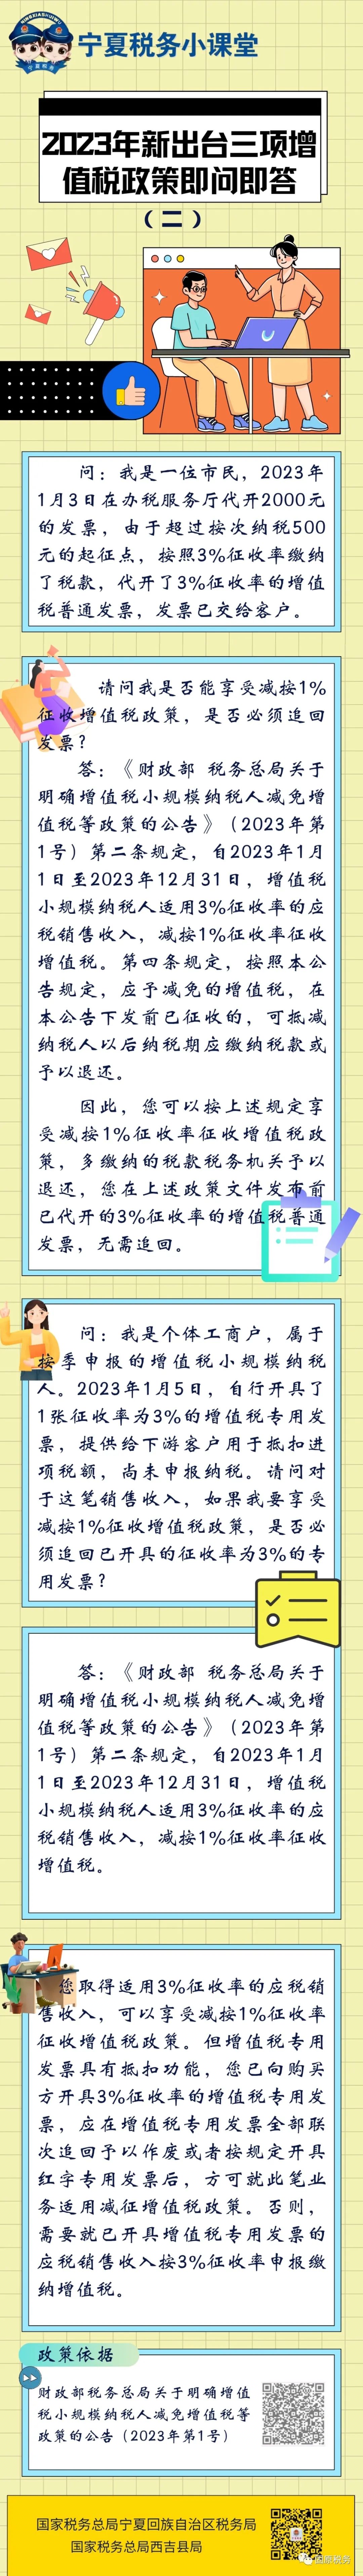 NINGXIASHUIWU
宁夏税务
宁夏税务小课堂
2023年新出台三项增
值税政策即问即答
（二）
问：我是一位市民，2023年
1月3日在办税服务厅代开2000元
的发票，由于超过按次纳税500
元的起征点，按照3%征收率缴纳
了税款，代开了3%征收率的增值
税普通发票，发票已交给客户。
请问我是否能享受减按1%
征收增值税政策，是否必须追回
发票？
答：《财政部 税务总局关于
明确增值税小规模纳税人减免增
值税等政策的公告》（2023年第
1号）第二条规定，自2023年1月
1日至2023年12月31日，增值税
小规模纳税人适用3%征收率的应
税销售收入，减按1%征收率征收
增值税。第四条规定，按照本公
告规定，应予减免的增值税，在
本公告下发前已征收的，可抵减
纳税人以后纳税期应缴纳税款或
予以退还。
因此，您可以按上述规定享
受减按1%征收率征收增值税政
策，多缴纳的税款税务机关予以
退还，您在上述政策文件发布前
已代开的3%征收率的增值税普通
发票，无需追回。
问：我是个体工商户，属于
按季申报的增值税小规模纳税
人。2023年1月5日，自行开具了
1张征收率为3%的增值税专用发
票，提供给下游客户用于抵扣进
项税额，尚未申报纳税。请问对
于这笔销售收入，如果我要享受
减按1%征收增值税政策，是否必
须追回已开具的征收率为3%的专
用发票？
答：《财政部 税务总局关于
明确增值税小规模纳税人减免增
值税等政策的公告》（2023年第
1号）第二条规定，自2023年1月
1日至2023年12月31日，增值税
小规模纳税人适用3%征收率的应
税销售收入，减按1%征收率征收
增值税。
您取得适用3%征收率的应税销
售收入，可以享受减按1%征收率
征收增值税政策。但增值税专用
发票具有抵扣功能，您已向购买
方开具3%征收率的增值税专用发
票，应在增值税专用发票全部联
次追回予以作废或者按规定开具
红字专用发票后，方可就此笔业
务适用减征增值税政策。否则，
需要就已开具增值税专用发票的
应税销售收入按3%征收率申报缴
纳增值税。
政策依据
财政部税务总局关于明确增值
税小规模纳税人减免增值税等
政策的公告（2023年第1号）
国家税务总局宁夏回族自治区税务局
国家税务总局西吉县局
西吉税务